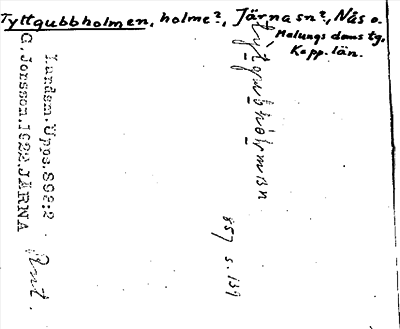 Tyttgubbholmen, holme?, Järna sn?, Näs o.
Malungs doms tg.
Kopp. län.
Landsm. Upps. 892:2
G. Jorsson. 1922. JÄRNA
857 s. 139